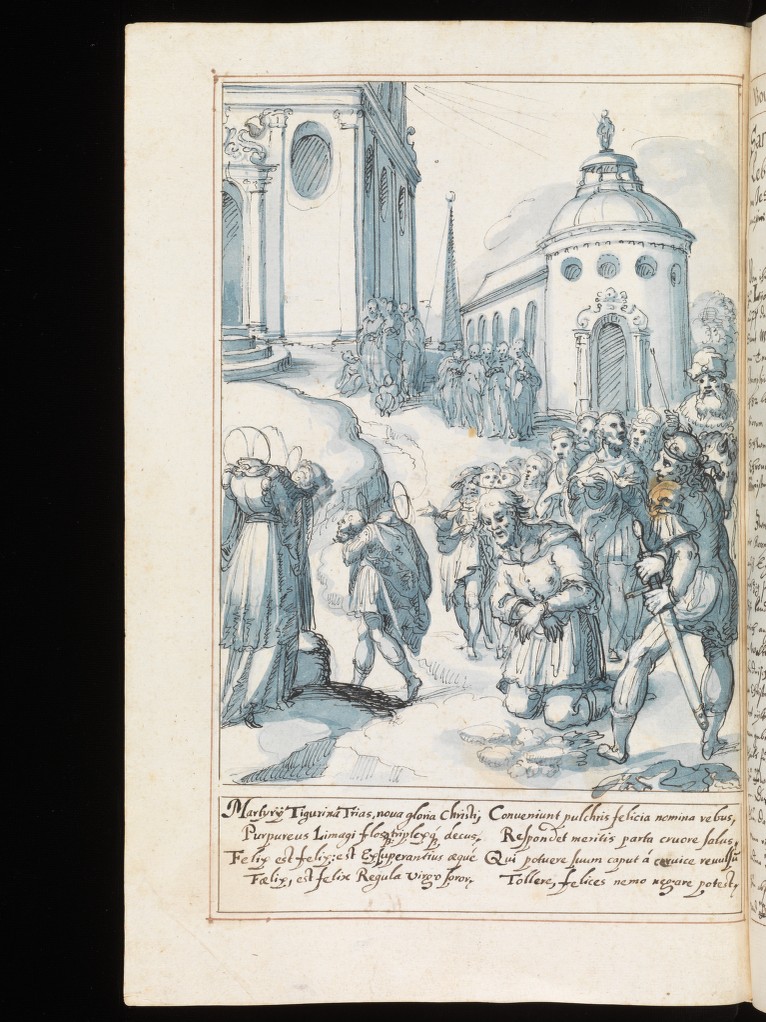 Martyrÿ Tigurina Trias, nova gloria Christi,
Purpureus Limagi flos, triplexq́ decus,
Felix est felix; est Exsuperantius æque
Fælix, est felix Regula virgo soror,
Conveniunt pulchris felicia nomina rebus,
Respondet meritis parta cruore salus,
Qui potuere suum caput á cervice revulsū
Tollere, felices nemo negare potest,